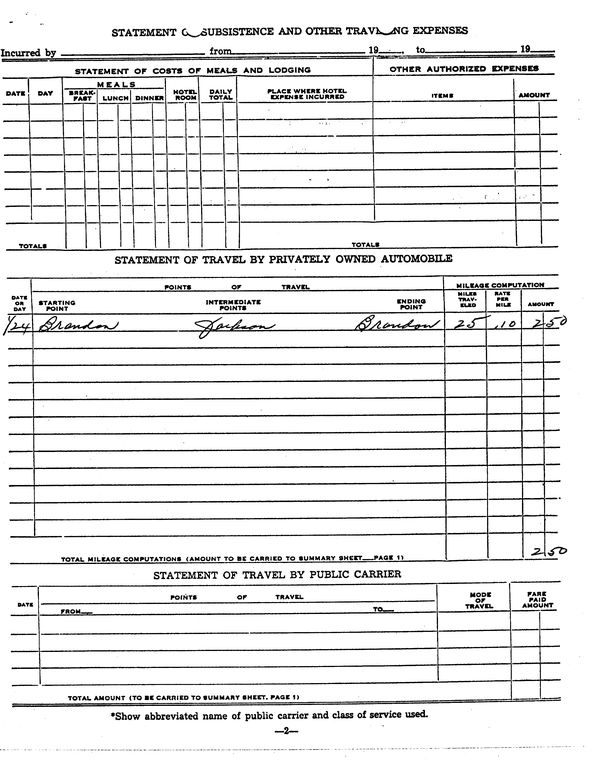 STATEMENT SUBSISTENCE AND OTHER EXPENSES
Incurred by from 19 , to 19
STATEMENT OF COSTS OF MEALS AND LODGING OTHER AUTHORIZED EXPENSES
DATE DAY MEALS HOTEL ROOM DAILY TOTAL PLACE WHERE HOTEL EXPENSE INCURRED ITEMS AMOUNT
BREAK-FAST LUNCH DINNER
TOTALS TOTALS
STATEMENT OF TRAVEL BY PRIVATELY OWNED AUTOMOBILE
POINTS OF TRAVEL MILEAGE COMPUTATION
DATE OR DAY STARTING POINT INTERMEDIATE POINTS ENDING POINT MILES TRAV-ELED RATE PER MILE AMOUNT
1/24 Brandon Jackson Brandon 25 .10 2 50
TOTAL MILEAGE COMPUTATIONS (AMOUNT TO BE CARRIED TO SUMMARY SHEET PAGE 1) 2 50
STATEMENT OF TRAVEL BY PUBLIC CARRIER
DATE POINTS OF TRAVEL MODE OF TRAVEL FARE PAID AMOUNT
FROM TO
TOTAL AMOUNT (TO BE CARRIED TO SUMMARY SHEET, PAGE 1)
*Show abbreviated name of public carrier and class of service used.
—2—